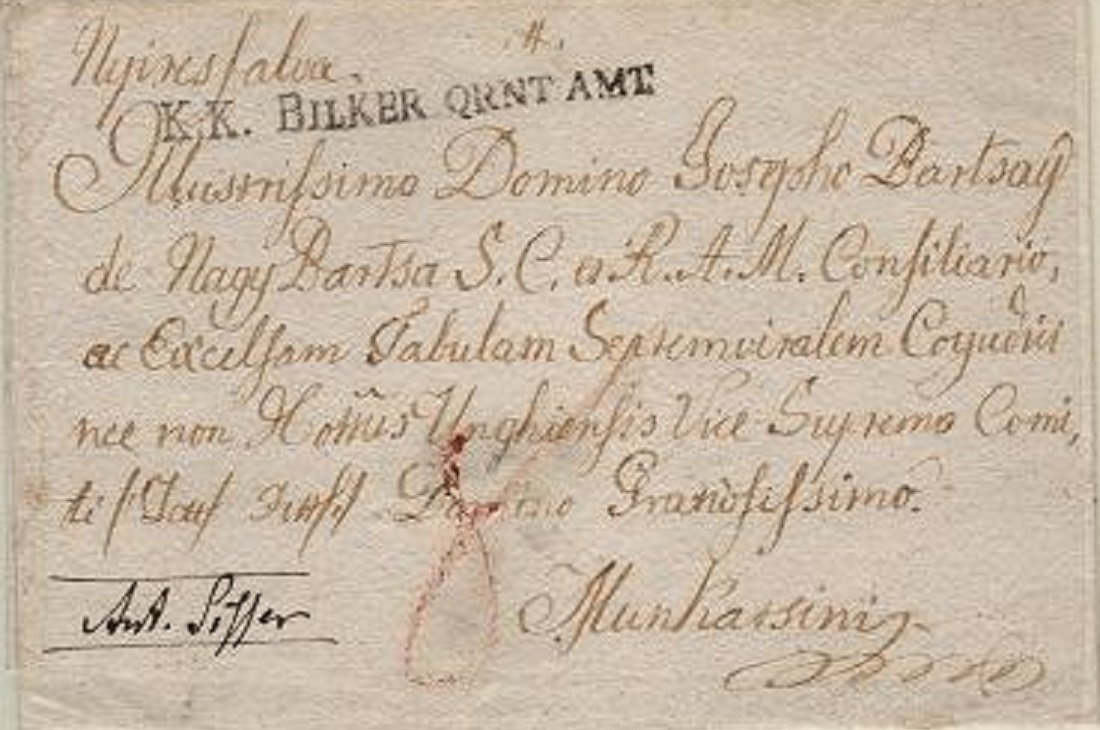 Nyiresfalva.
K.K. BILKER QRNT AMT.
Illustrissimo Domino Josepho Bartsay
de Nagy Bartsa S. C. et R. A. M. Consiliario,
ac Excelsam Tabulam Septemviralem
nec non Unghiensis Vice Supremo Comi,
ti Grandissimo.
Ant. Siffer
Munkatsini